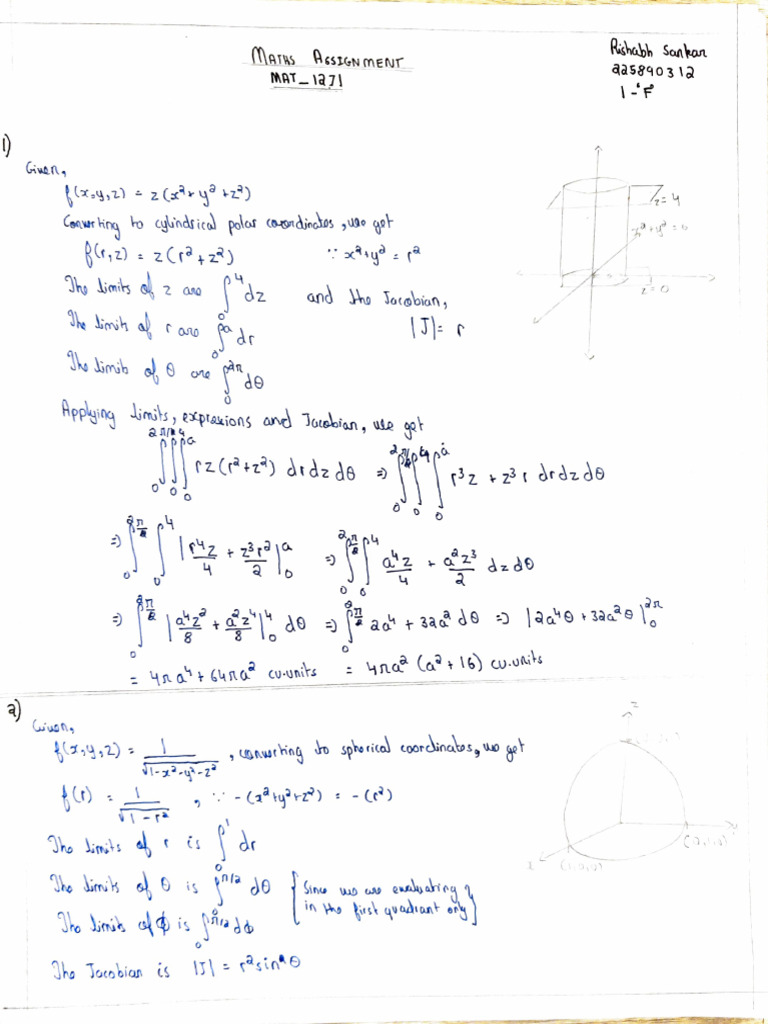 MATHS ASSIGNMENT
MAT_1271
Rishabh Sankar
225890312
1-'F'
1)
Given,
f(x,y,z) = z(x²+y²+z²)
Converting to cylindrical polar coordinates, we get
f(r,z) = z(r²+z²) ∵ x²+y² = r²
The limits of z are ∫₀⁴ dz and the Jacobian,
The limits of r are ∫₀ᵃ dr |J| = r
The limits of θ are ∫₀^2π dθ
z=4
z=0
Applying limits, expressions and Jacobian, we get
∫₀^2π ∫₀⁴ ∫₀ᵃ rz(r²+z²) dr dz dθ ⇒ ∫₀^2π ∫₀⁴ ∫₀ᵃ r³z + z³r dr dz dθ
⇒ ∫₀^2π ∫₀⁴ |r⁴z/4 + z³r²/2|₀ᵃ ⇒ ∫₀^2π ∫₀⁴ a⁴z/4 + a²z³/2 dz dθ
⇒ ∫₀^2π |a⁴z²/8 + a²z⁴/8|₀⁴ dθ ⇒ ∫₀^2π 2a⁴ + 32a² dθ ⇒ |2a⁴θ + 32a²θ|₀^2π
= 4πa⁴ + 64πa² cu.units = 4πa²(a²+16) cu.units
2)
Given,
f(x,y,z) = 1/√(1-x²-y²-z²), converting to spherical coordinates, we get
f(r) = 1/√(1-r²), ∵ -(x²+y²+z²) = -(r²)
The limits of r is ∫₀¹ dr
The limits of θ is ∫₀^π/2 dθ {Since we are evaluating
in the first quadrant only}
The limits of ϕ is ∫₀^π/2 dϕ
The Jacobian is |J| = r² sin θ
z
x
(1,0,0)
(0,1,0)